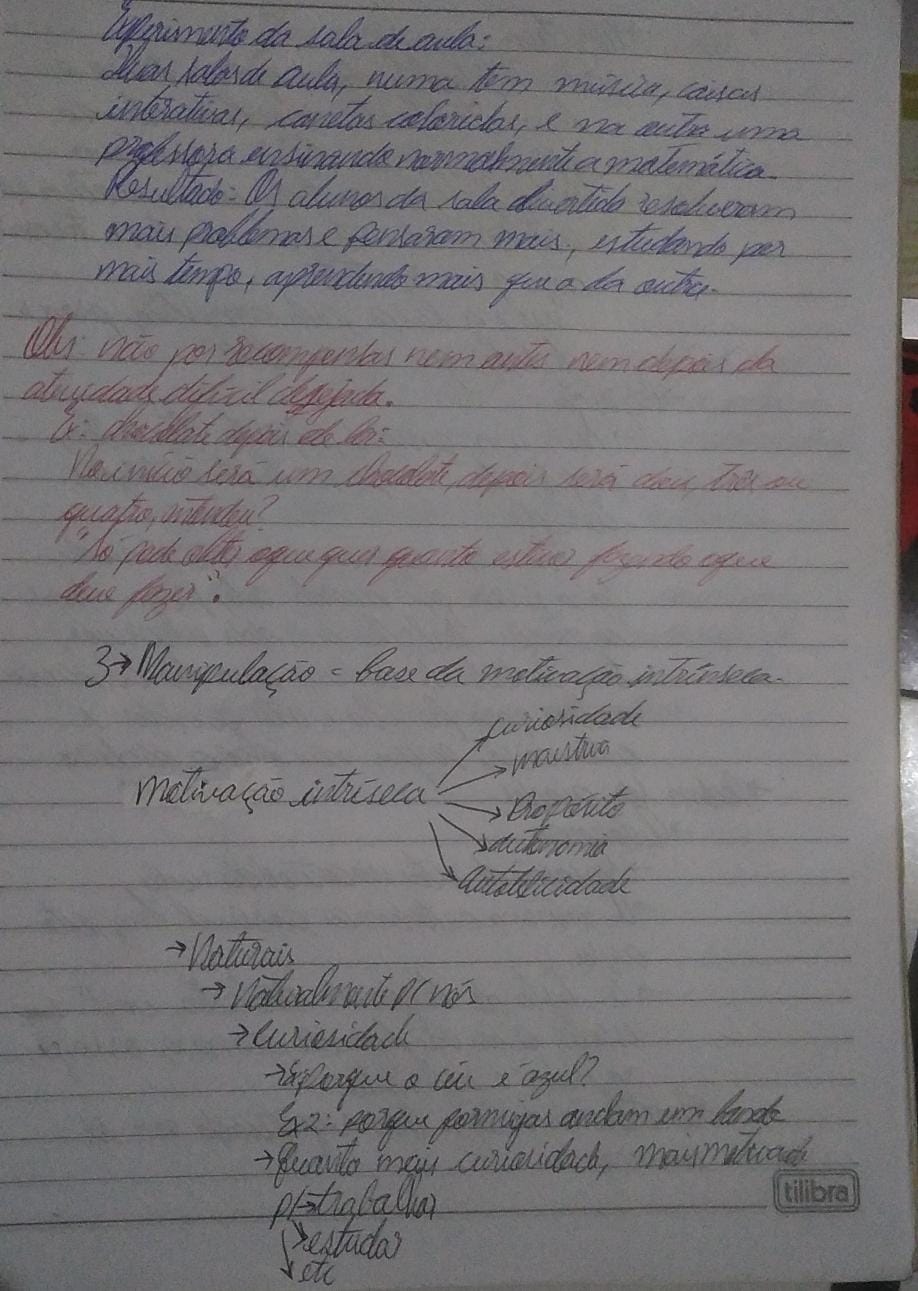 Experimento da sala de aula:
Duas salas de aula, numa tem música, caixas
interativas, canetas coloridas, e na outra uma
professora ensinando normalmente a matemática.
Resultado: Os alunos da sala divertida resolveram
mais problemas e pensaram mais, estudando por
mais tempo, aprendendo mais que o da outra.
Obs: não por recompensas nem antes nem depois da
atividade difícil desejada.
Ex: chocolate depois de ler:
No início será um chocolate, depois será dois, três ou
quatro, intendeu?
"só pode obter o que quer quanto estiver fazendo o que
deve fazer".
3→ Manipulação = base da motivação intrínseca.
Motivação intríseca
curiosidade
maestria
Propósito
autonomia
Autotelicidade
→ Naturais
→ Naturalmente p/ nós
→ Curiosidade
→ Ex: porque o céu é azul?
Ex2: porque formigas andam em bando
→ Quanto mais curiosidade, mais motivado
p/→ trabalhar
→ estudar
→ etc
tilibra